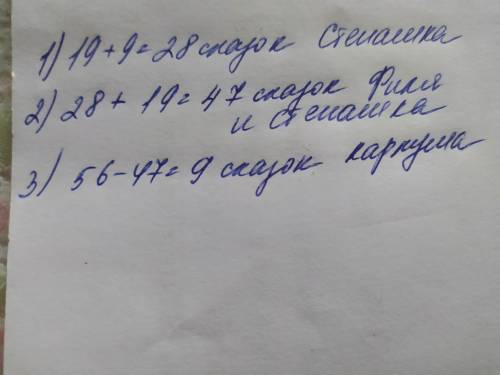 1) 19+9=28 сказок Степашка
2) 28+19=47 сказок Филя
и Степашка
3) 56-47=9 сказок каркуша